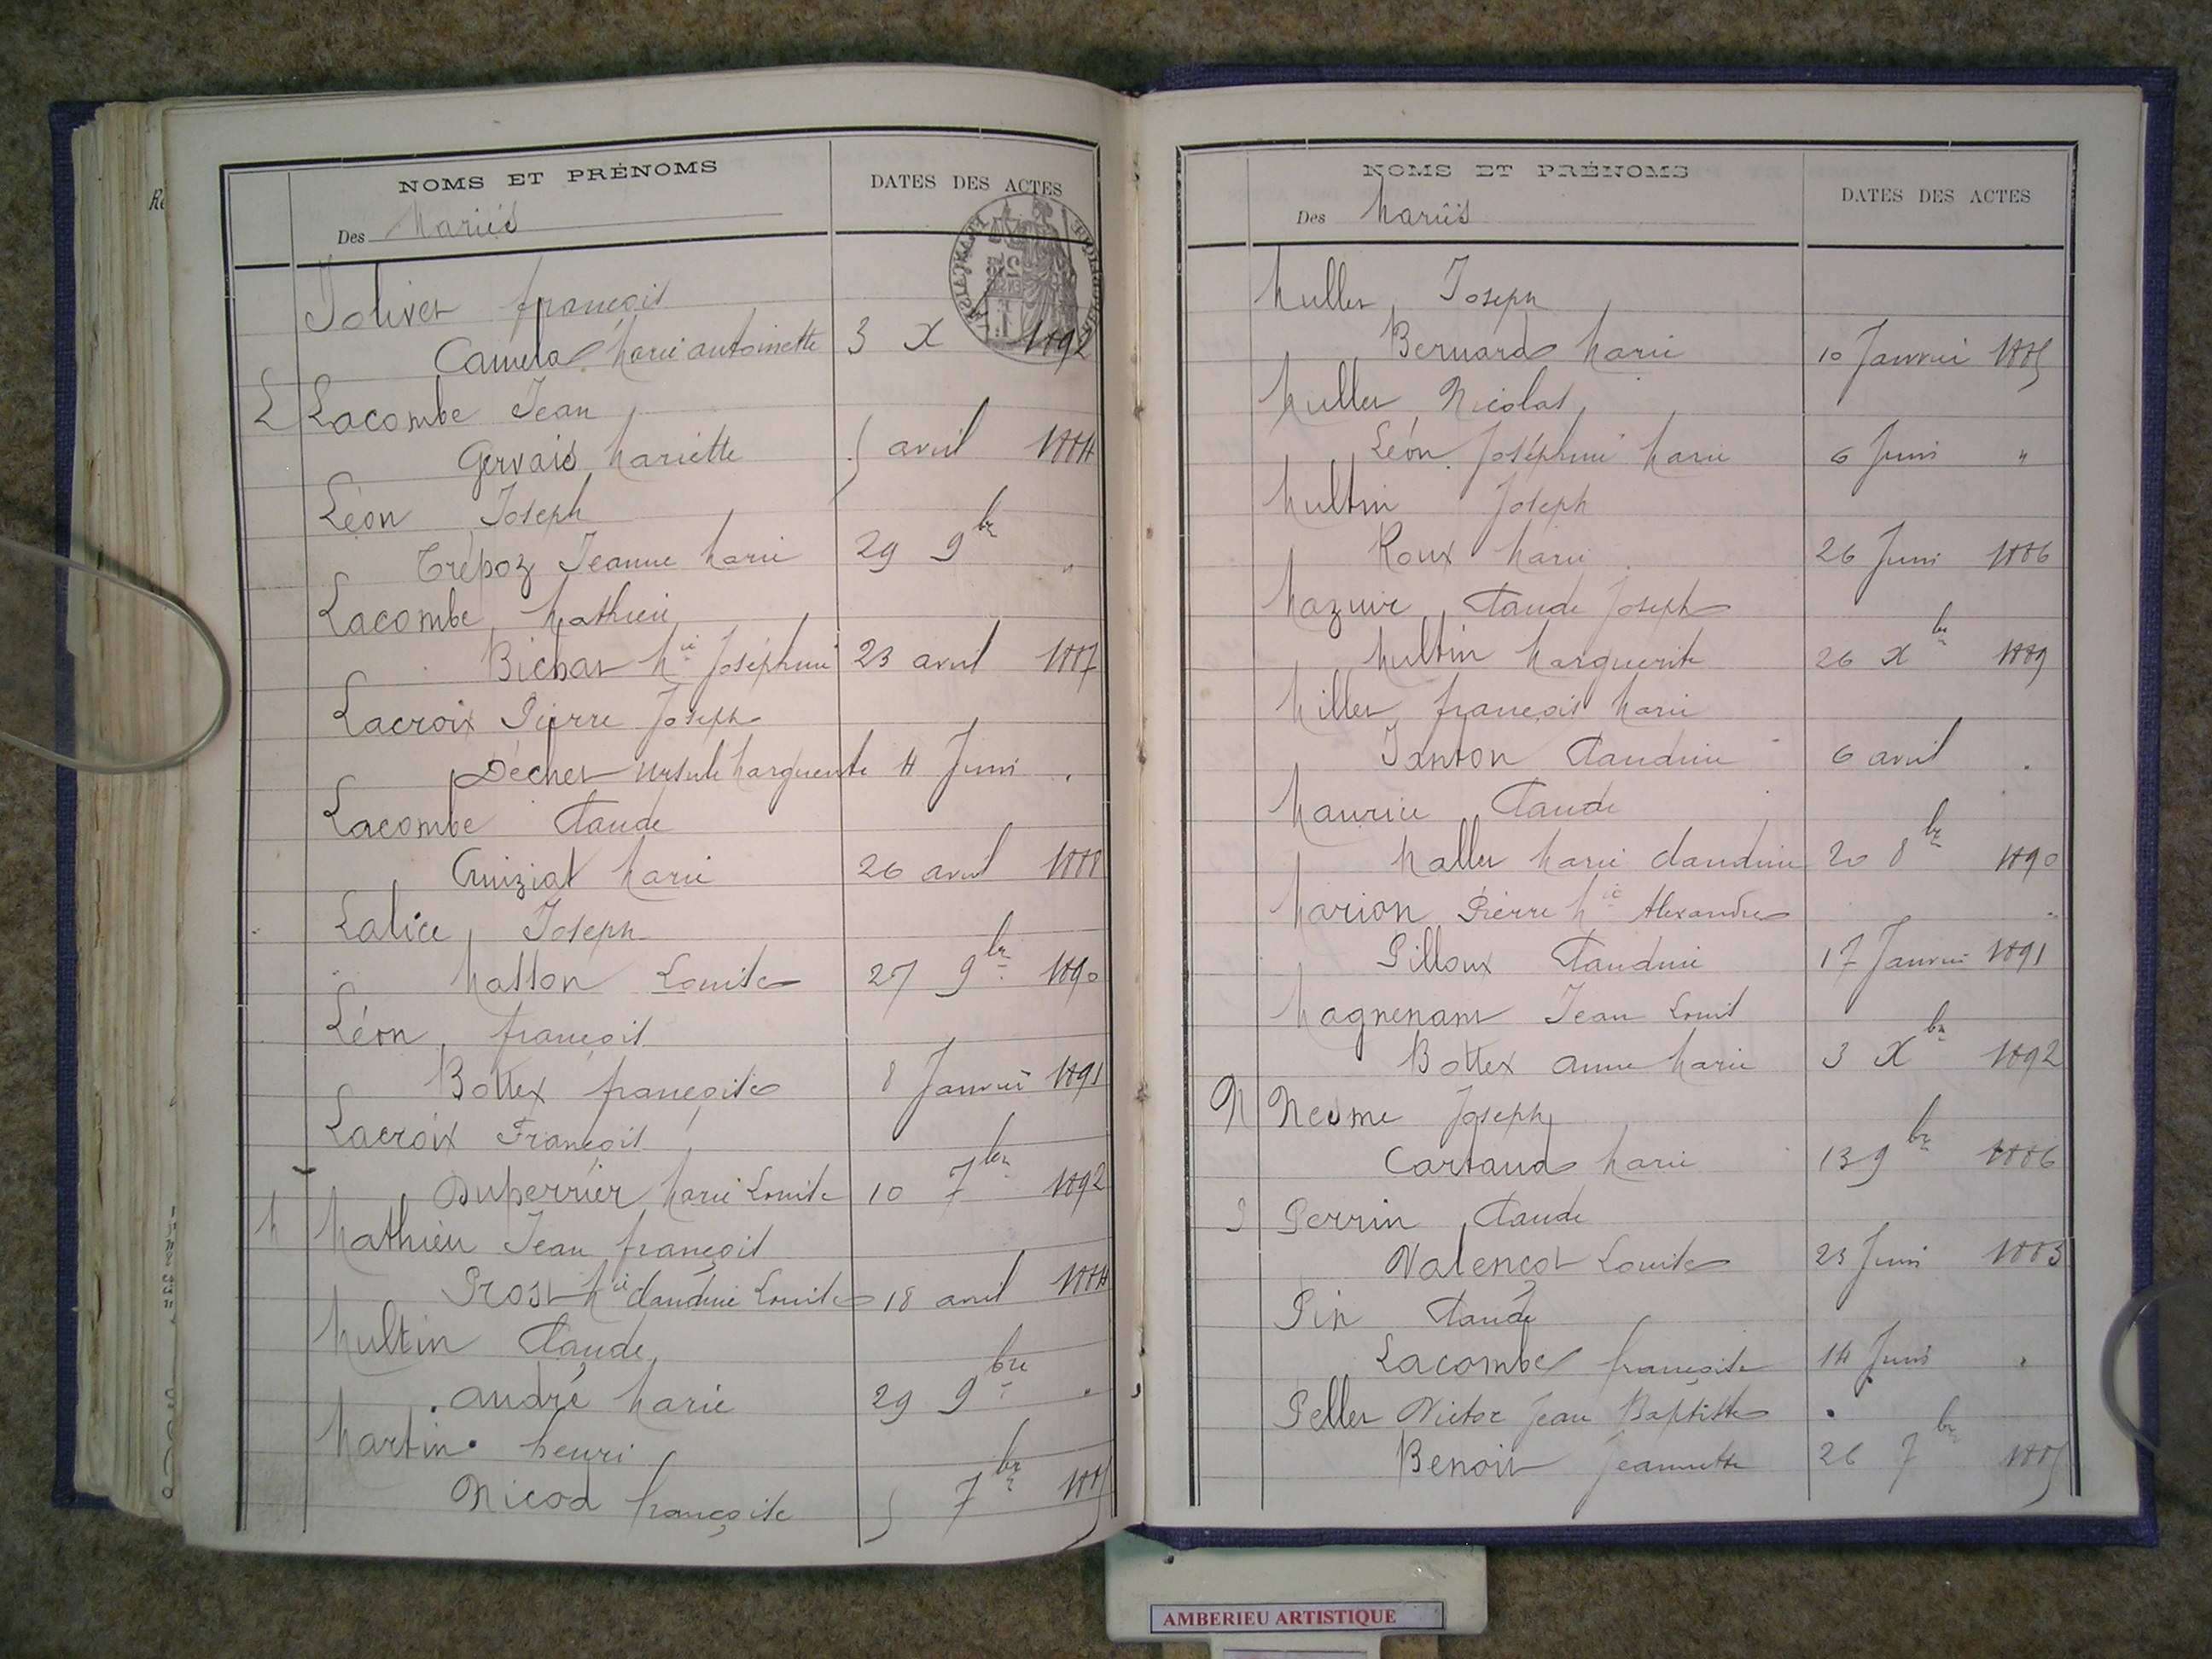 NOMS ET PRÉNOMS
DATES DES ACTES
Des Mariés
Jolivet françois
Camela Marie antoinette 3 X 1892
L Lacombe Jean
Gervais Mariette 5 avril 1884
Léon Joseph
Trépoz Jeanne Marie 29 9bre "
Lacombe Mathieu
Bichat Mie Joséphine 23 avril 1887
Lacroix Pierre Joseph
Déchet Ursule Marguerite 4 Juin "
Lacombe Claude
Cruiziat Marie 26 avril 1888
Lalice Joseph
Masson Louise 27 9bre 1890
Léon françois
Bottex françoise 8 Janvier 1891
Lacroix François
Duperrier Marie Louise 10 7bre 1892
M Mathieu Jean françois
Prost Mie claudine Louise 18 avril 1884
Multin Claude
andré Marie 29 9bre "
Martin henri
Nicod françoise 5 7bre 1885
NOMS ET PRÉNOMS
DATES DES ACTES
Des Mariés
Muller Joseph
Bernard Marie 10 Janvier 1885
Muller Nicolas
Léon Joséphine Marie 6 Juin "
Multin Joseph
Roux Marie 26 Juin 1886
Mazuir Claude Joseph
Multin Marguerite 26 Xbre 1889
Miller françois Marie
Janton Claudine 6 avril "
Maurice Claude
Maller Marie claudine 20 8bre 1890
Marion Pierre Mie Alexandre
Pilloux Claudine 17 Janvier 1891
Magnenant Jean Louis
Bottex anne Marie 3 Xbre 1892
N Nesme Joseph
Cartaud Marie 13 9bre 1886
P Perrin Claude
Valençot Louise 23 Juin 1883
Pin Claude
Lacombe françoise 14 Juin "
Pellet Victor Jean Baptiste
Benoit Jeannette 26 7bre 1885
AMBERIEU ARTISTIQUE